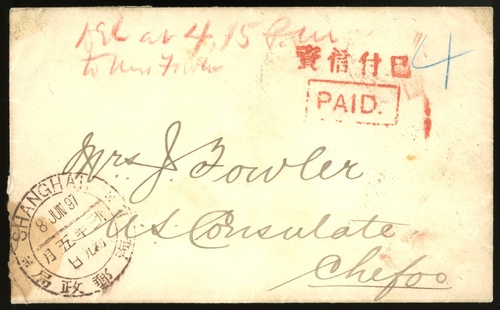 Del at 4,15 P.m
to Mrs Fowler
資信付已
4
PAID.
Mrs J. Fowler
US Consulate
Chefoo
SHANGHAI
8 JUN 97
郵政局